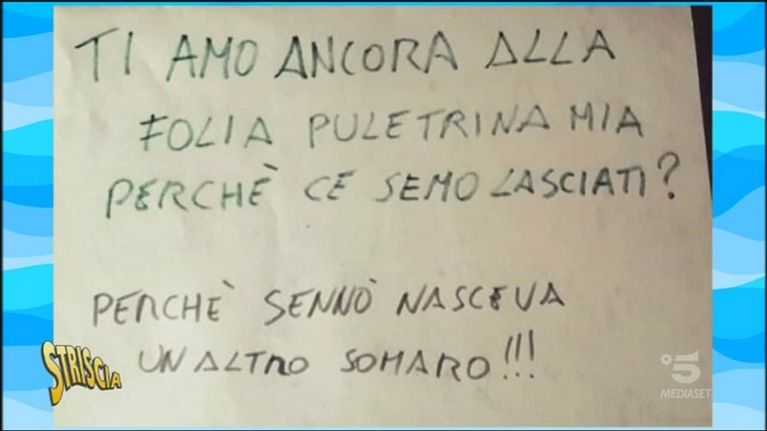 TI AMO ANCORA ALLA
FOLIA PULETRINA MIA
PERCHÈ CE SEMO LASCIATI?
PERCHÈ SENNÒ NASCEVA
UN ALTRO SOMARO!!!
STRISCIA
5
MEDIASET